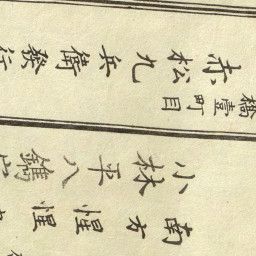 橋壹町目
赤松九兵衛發行
小林平八鐫
南方惺惺